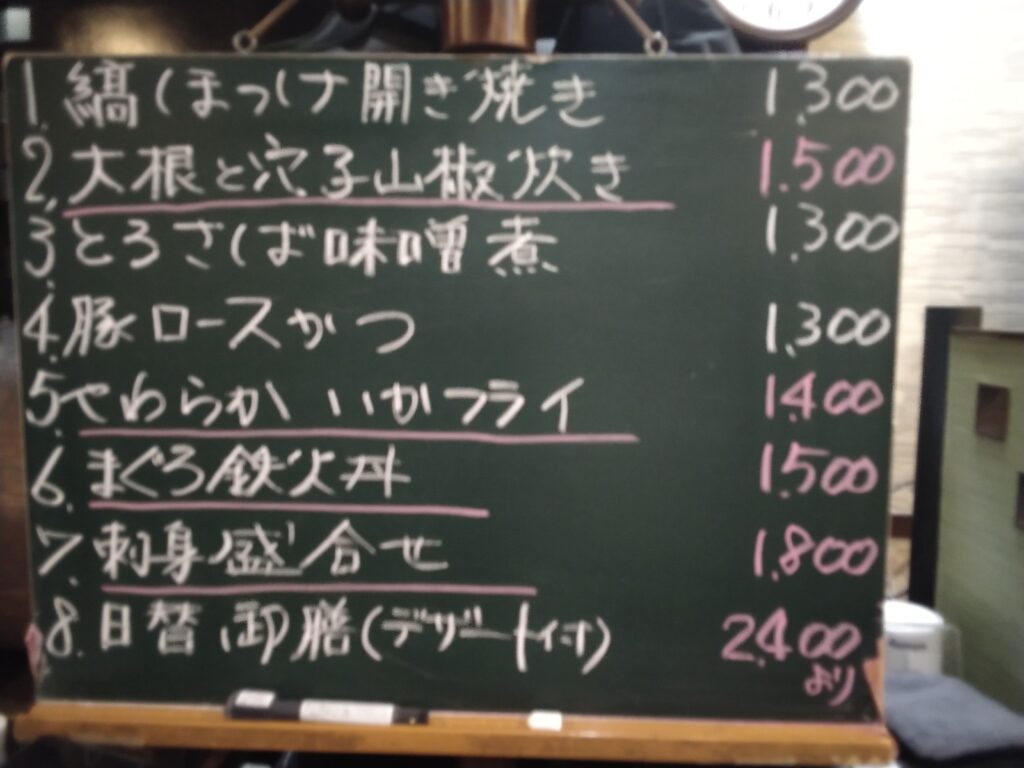 1. 縞ほっけ開き焼き 1,300
2. 大根と穴子山椒炊き 1,500
3. とろさば味噌煮 1,300
4. 豚ロースかつ 1,300
5. やわらかいかフライ 1,400
6. まぐろ鉄火丼 1,500
7. 刺身盛合せ 1,800
8. 日替御膳(デザート付) 2,400
より